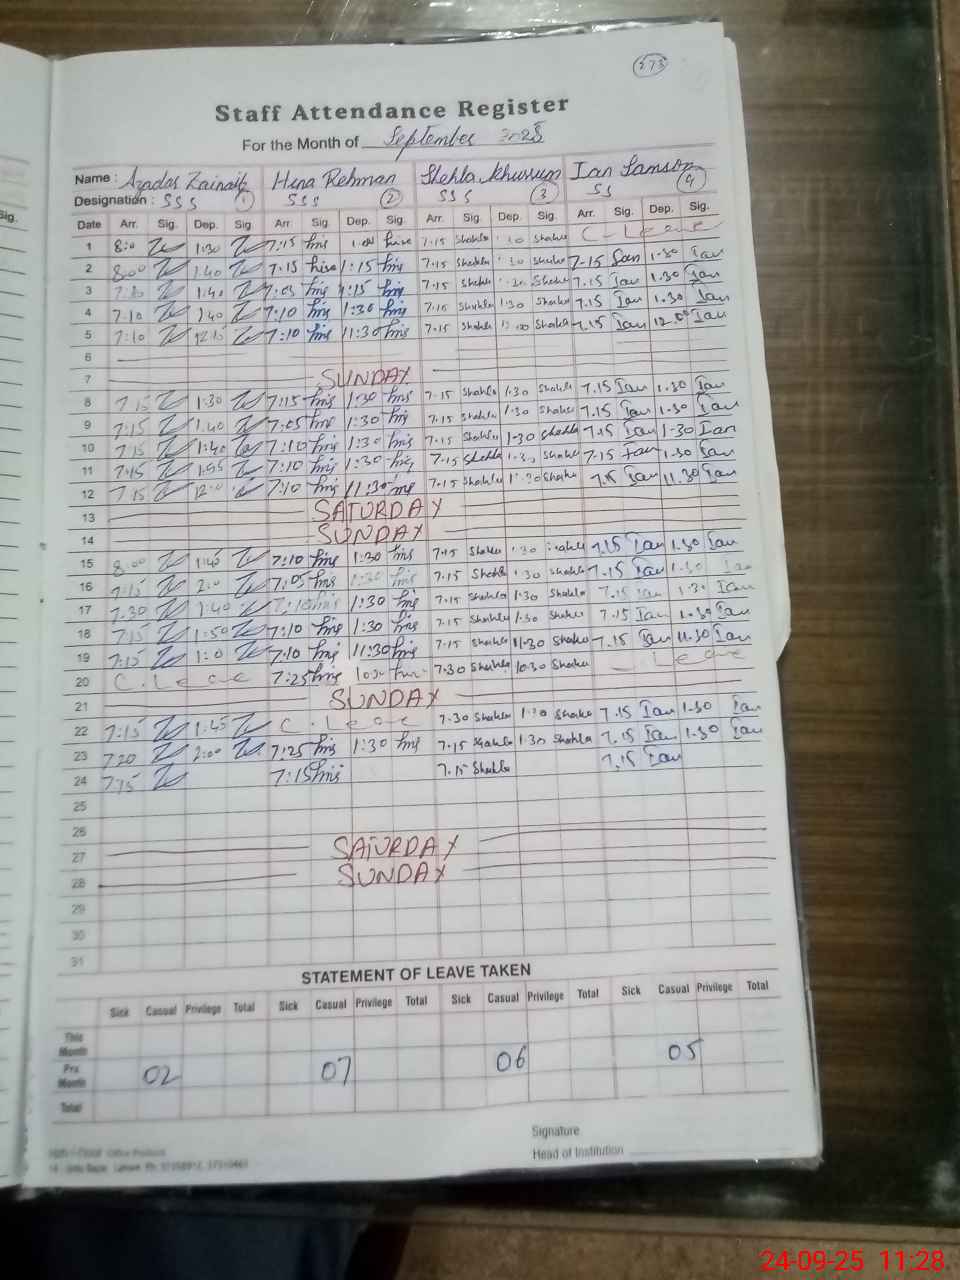 273
Staff Attendance Register
For the Month of September 2025
Name : Zainab Hena Rehman Shehla Khurrum Ian Samson
Designation : SSS 1 SSS 2 SSS 3 SS 4
Sig.
Date Arr. Sig. Dep. Sig. Arr. Sig. Dep. Sig. Arr. Sig. Dep. Sig. Arr. Sig. Dep. Sig.
1 8:0 1:30 7:15 hina 7-15 Shehla Shehla C-Leave
2 8:00 1:40 7-15 hina 1:15 hina 7-15 Shehla Shehla 7-15 Ian 1-30 Ian
3 1:40 7:05 hina 1:15 hina 7-15 Shehla Shehla 7.15 Ian 1.30 Ian
4 7:10 1:40 7:10 hina 1:30 hina 7-15 Shehla 1:30 Shehla 7.15 Ian 1.30 Ian
5 7:10 12:15 7:10 hina 11:30 hina 7-15 Shehla Shehla 7.15 Ian 12.00 Ian
6
7 SUNDAY
8 7:15 1:30 7:15 hina 1:30 hina 7-15 Shehla 1-30 Shehla 7.15 Ian 1.30 Ian
9 7:15 1:40 7:05 hina 1:30 hina 7-15 Shehla 1-30 Shehla 7.15 Ian 1-30 Ian
10 7:15 1:40 7:10 hina 1:30 hina 7-15 Shehla 1-30 Shehla 7.15 Ian 1-30 Ian
11 7:15 7:10 hina 1:30 hina 7-15 Shehla 1-30 Shehla 7-15 Ian 1.30 Ian
12 7:15 7:10 hina 11:30 hina 7-15 Shehla Shehla 7.15 Ian 11.30 Ian
13 SATURDAY
14 SUNDAY
15 8:00 1:45 7:10 hina 1:30 hina 7-15 Shehla 1-30 Shehla 7.15 Ian 1.30 Ian
16 7:15 2:0 7:05 hina 1:30 hina 7-15 Shehla 1-30 Shehla 7.15 Ian 1.30 Ian
17 7.30 1:40 7:10 hina 1:30 hina 7-15 Shehla 1-30 Shehla 7.15 Ian 1.30 Ian
18 7:15 1:50 7:10 hina 1:30 hina 7-15 Shehla 1-30 Shehla 7.15 Ian 1.30 Ian
19 7:15 1:0 7:10 hina 11:30 hina 7-15 Shehla 11-30 Shehla 7.15 Ian 11.30 Ian
20 C. Leave 7:25 hina 10:30 hina 7-30 Shehla 10-30 Shehla C. Leave
21 SUNDAY
22 7:15 1:45 C. Leave 7-30 Shehla 1-30 Shehla 7.15 Ian 1.30 Ian
23 7:20 2:00 7:25 hina 1:30 hina 7-15 Shehla 1-30 Shehla 7.15 Ian 1.30 Ian
24 7:15 7:15 hina 7.15 Shehla 7.15 Ian
25
26
27 SATURDAY
28 SUNDAY
29
30
31
STATEMENT OF LEAVE TAKEN
Sick Casual Privilege Total Sick Casual Privilege Total Sick Casual Privilege Total Sick Casual Privilege Total
This Month
Pre Month 02 07 06 05
Total
Signature
Head of Institution
24-09-25 11:28